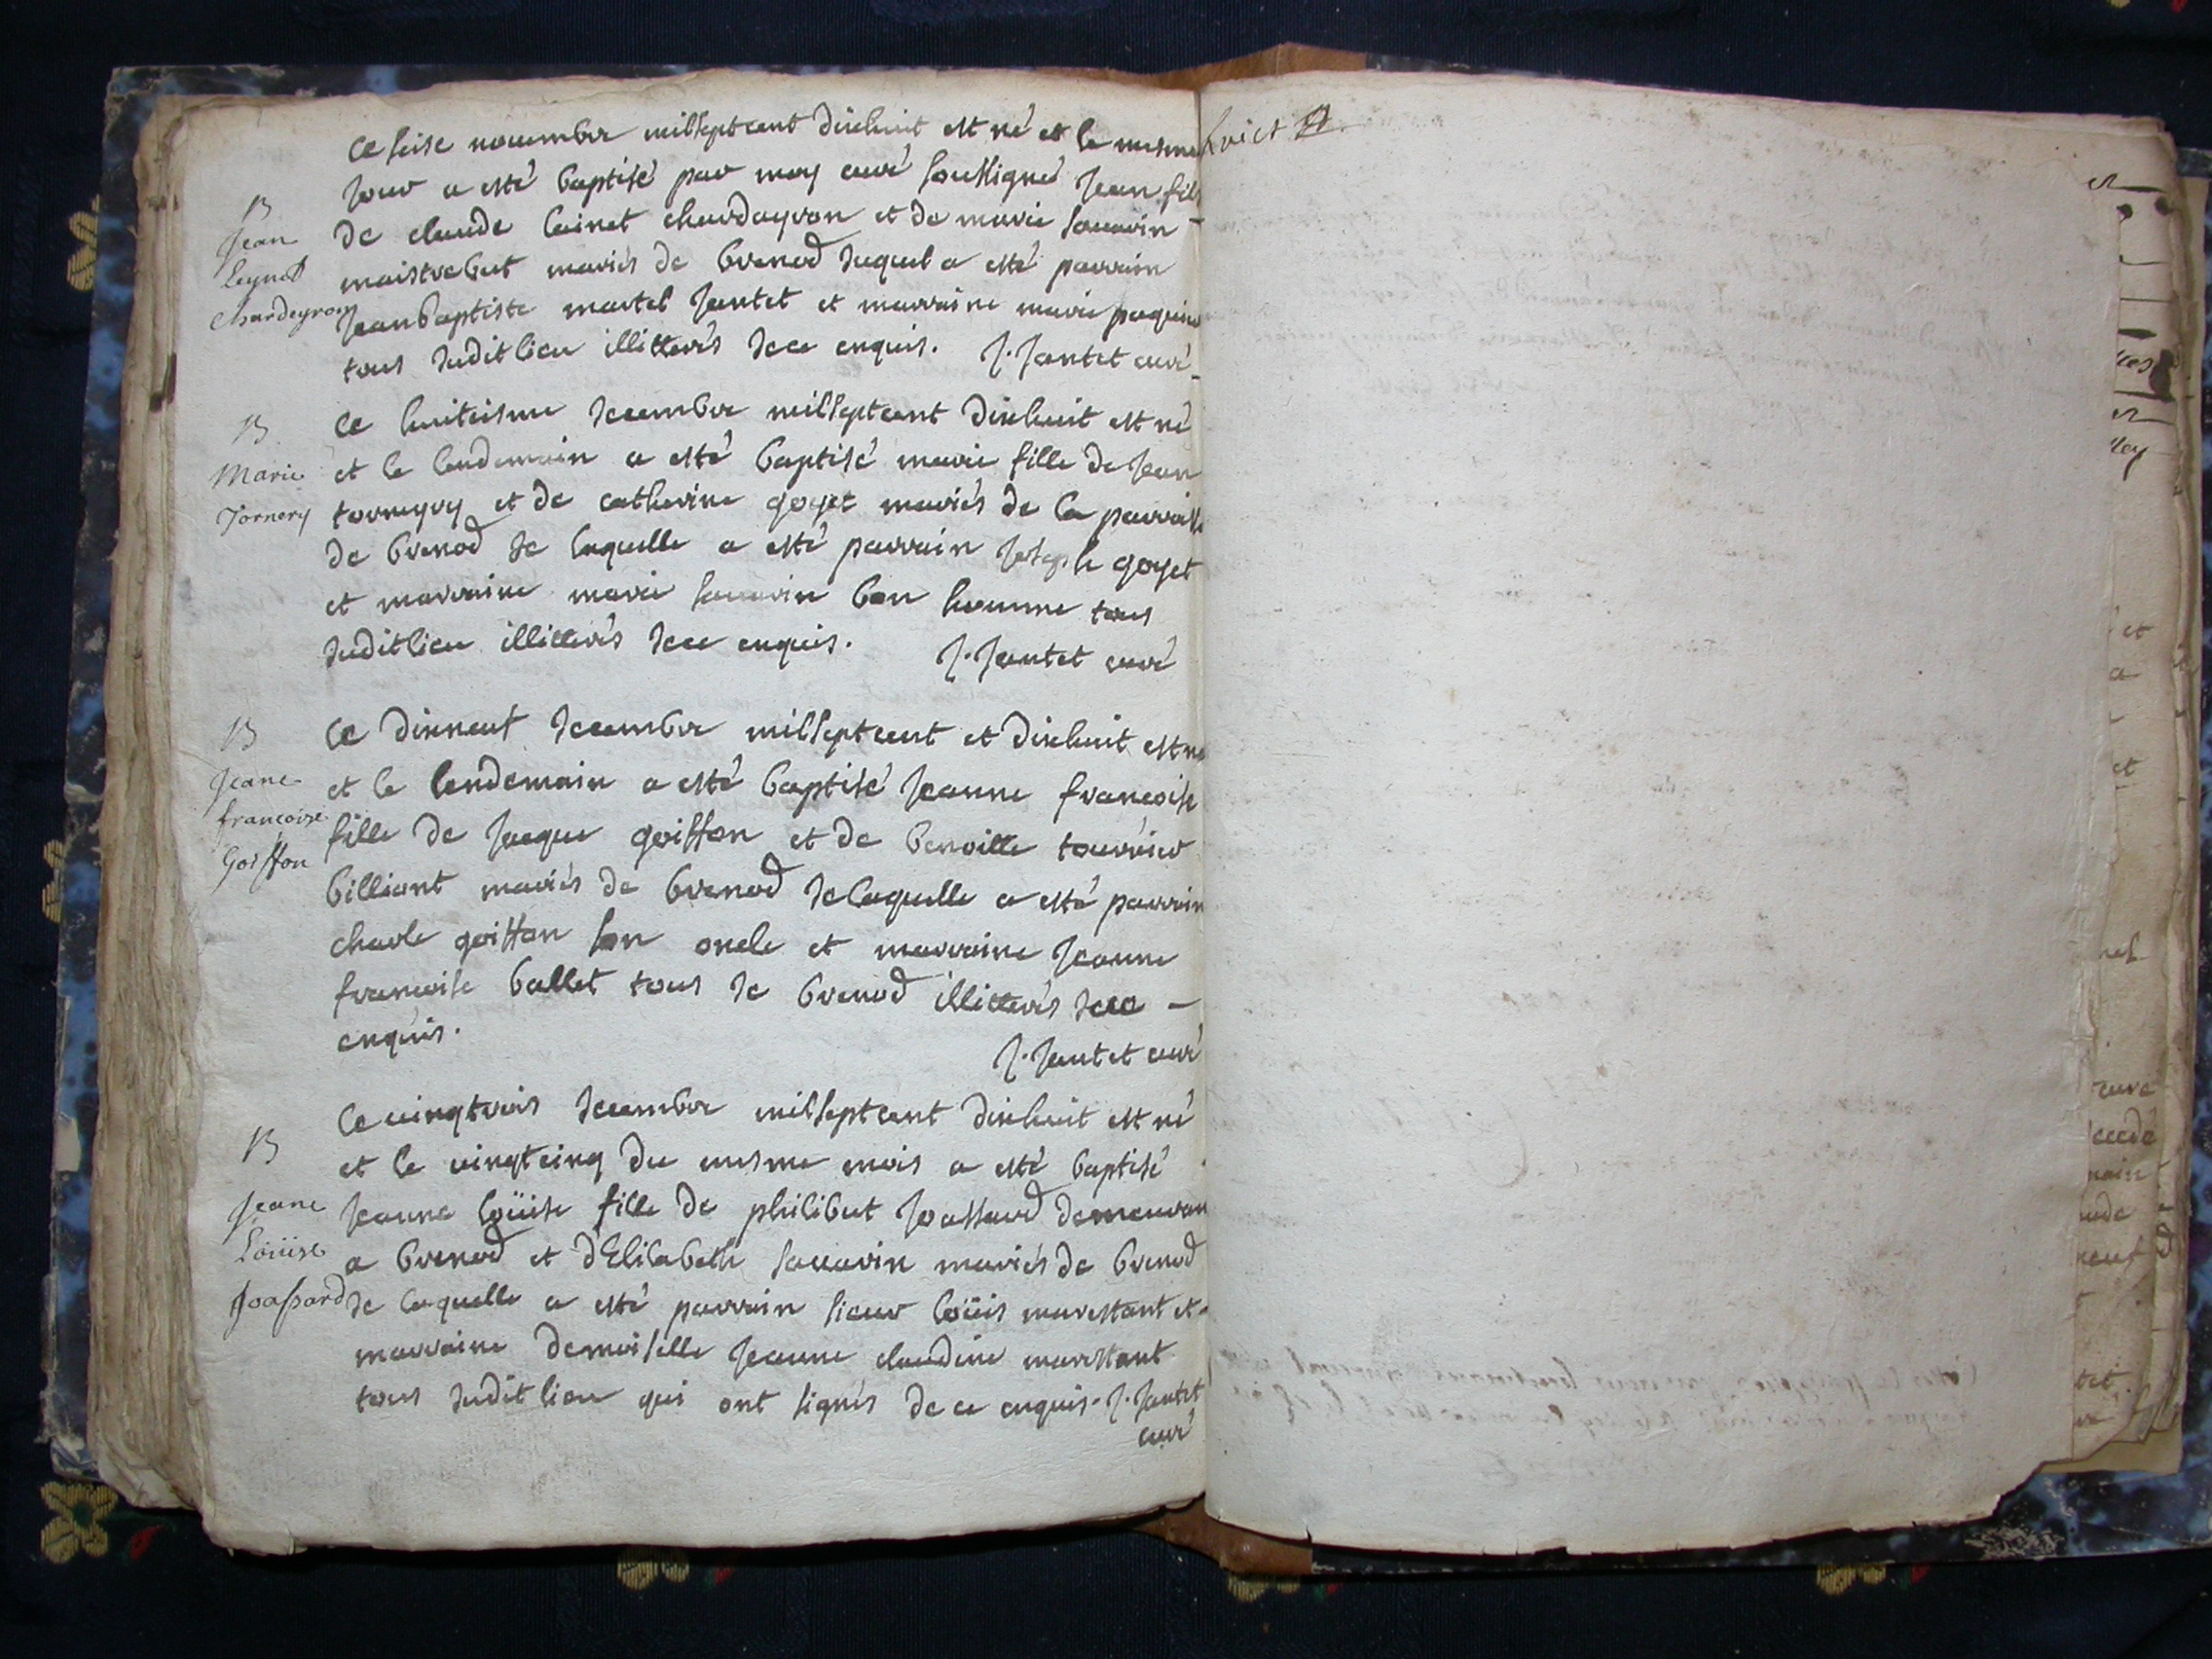 B
Jean
Leynet
Chardeyron
Ce seise nouembre milseptcent dixhuit est né et le mesme
Jour a esté baptisé par moy curé soussigné Jean fils
de claude Leinet chardayron et de marie sauarin
maistrebut mariés de brenod duquel a esté parrain
Jeanbaptiste martel Jantet et marraine marie paquine
tous duditlieu illitterés dece enquis. J. Jantet curé
B
Marie
Tornery
Ce huitiesme decembre milseptcent dixhuit est né
et le lendemain a esté baptisé marie fille de Jean
torneyry et de catherine goyet mariés de la parroisse
de brenod de laquelle a esté parrain Joseph goyet
et marraine marie sauarin bon homme tous
duditlieu illitterés dece enquis.
J. Jantet curé
B
Jeane
francoise
Goiffon
Ce dixneuf decembre milseptcent et dixhuit est né
et le lendemain a esté baptisé Jeanne francoise
fille de Jaque goiffon et de benoitte tournier
billiant mariés de brenod delaquelle a esté parrain
charle goiffon son oncle et marraine Jeanne
francoise ballet tous de brenod illitterés dece
enquis.
J. Jantet curé
B
Jeane
Loüise
Joassard
Ce uingtrois decembre milseptcent dixhuit est né
et le uingtcinq du mesme mois a esté baptisé
Jeanne loüise fille de philibert Joassard demeurant
a brenod et d'Elisabeth sauarin mariés de brenod
de laquelle a esté parrain sieur loüis marestant et
marraine demoiselle Jeanne claudine marestant
tous dudit lieu qui ont signés de ce enquis. J. Jantet
curé